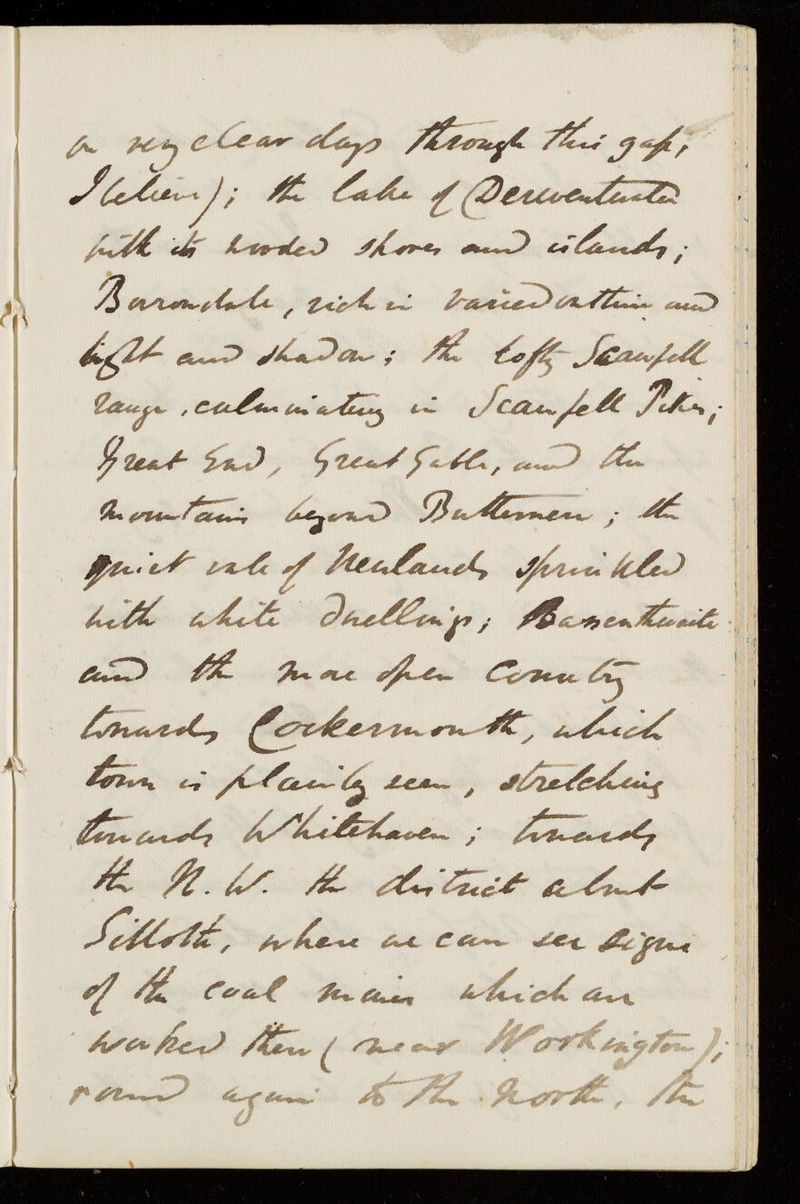 on very clear days through this gap,
I believe); the lake of Derwentwater
with its wooded shores and islands;
Borrowdale, rich in varied outline and
light and shadow; the lofty Scawfell
range, culminating in Scawfell Pikes;
Great End, Great Gable, and the
mountains beyond Buttermere; the
quiet vale of Newlands sprinkled
with white dwellings; Bassenthwaite
and the more open country
towards Cockermouth, which
town is plainly seen, stretching
towards Whitehaven; towards
the N.W. the district about
Silloth, where we can see signs
of the coal mines which are
worked there (near Workington);
round again to the North, the